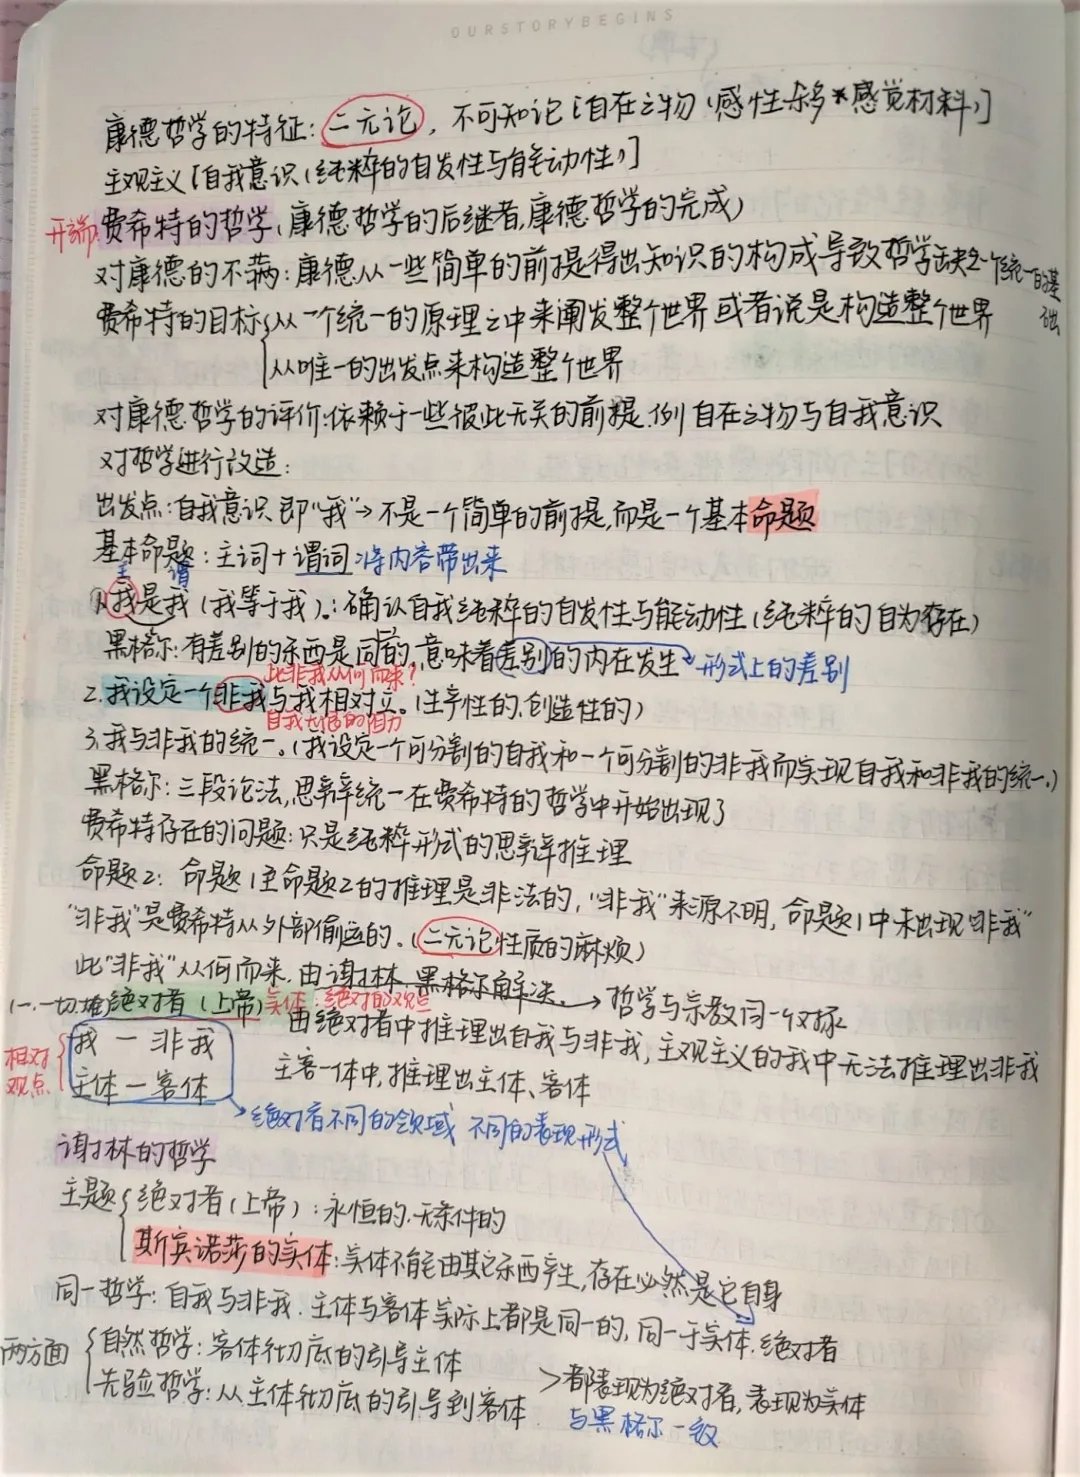 OURSTORYBEGINS
康德哲学的特征：二元论，不可知论[自在之物(感性杂多*感觉材料)]
主观主义[自我意识(纯粹的自发性与能动性)]
开端：费希特的哲学(康德哲学的后继者,康德哲学的完成)
对康德的不满：康德从一些简单的前提得出知识的构成导致哲学缺乏一个统一的基础
费希特的目标{从一个统一的原理之中来阐发整个世界或者说是构造整个世界
从唯一的出发点来构造整个世界
对康德哲学的评价:依赖于一些彼此无关的前提.例自在之物与自我意识
对哲学进行改造：
出发点：自我意识即"我"→不是一个简单的前提,而是一个基本命题
基本命题：主词+谓词:将内容带出来
主 谓
1.我是我(我等于我).：确认自我纯粹的自发性与能动性(纯粹的自为存在)
黑格尔：有差别的东西是同一的,意味着差别的内在发生→形式上的差别
此非我从何而来？
2.我设定一个非我与我相对立。(生产性的.创造性的)
自我无限的阻力
3.我与非我的统一。(我设定一个可分割的自我和一个可分割的非我而实现自我和非我的统一.)
黑格尔：三段论法,思辩统一在费希特的哲学中开始出现了
费希特存在的问题：只是纯粹形式的思辩推理
命题2：命题1至命题2的推理是非法的，"非我"来源不明，命题1中未出现"非我"
"非我"是费希特从外部偷运的.(二元论性质的麻烦)
此"非我"从何而来.由谢林.黑格尔解决.→哲学与宗教同一个对象
绝对者(上帝)实体：绝对的观点
由绝对者中推理出自我与非我,主观主义的我中无法推理出非我
相对观点{我 — 非我
主体 — 客体
主客一体中,推理出主体、客体
→绝对者不同的领域 不同的表现形式
谢林的哲学
主题{绝对者(上帝)：永恒的.无条件的
斯宾诺莎的实体：实体不能由其它东西产生,存在必然是它自身
同一哲学：自我与非我.主体与客体实际上都是同一的,同一于实体.绝对者
两方面{自然哲学：客体彻底的引导主体
先验哲学：从主体彻底的引导到客体
>都表现为绝对者,表现为实体
与黑格尔一致